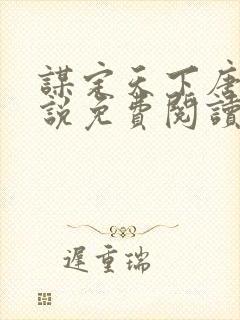 謀定天下唐
說免費閱讀
遲重瑞